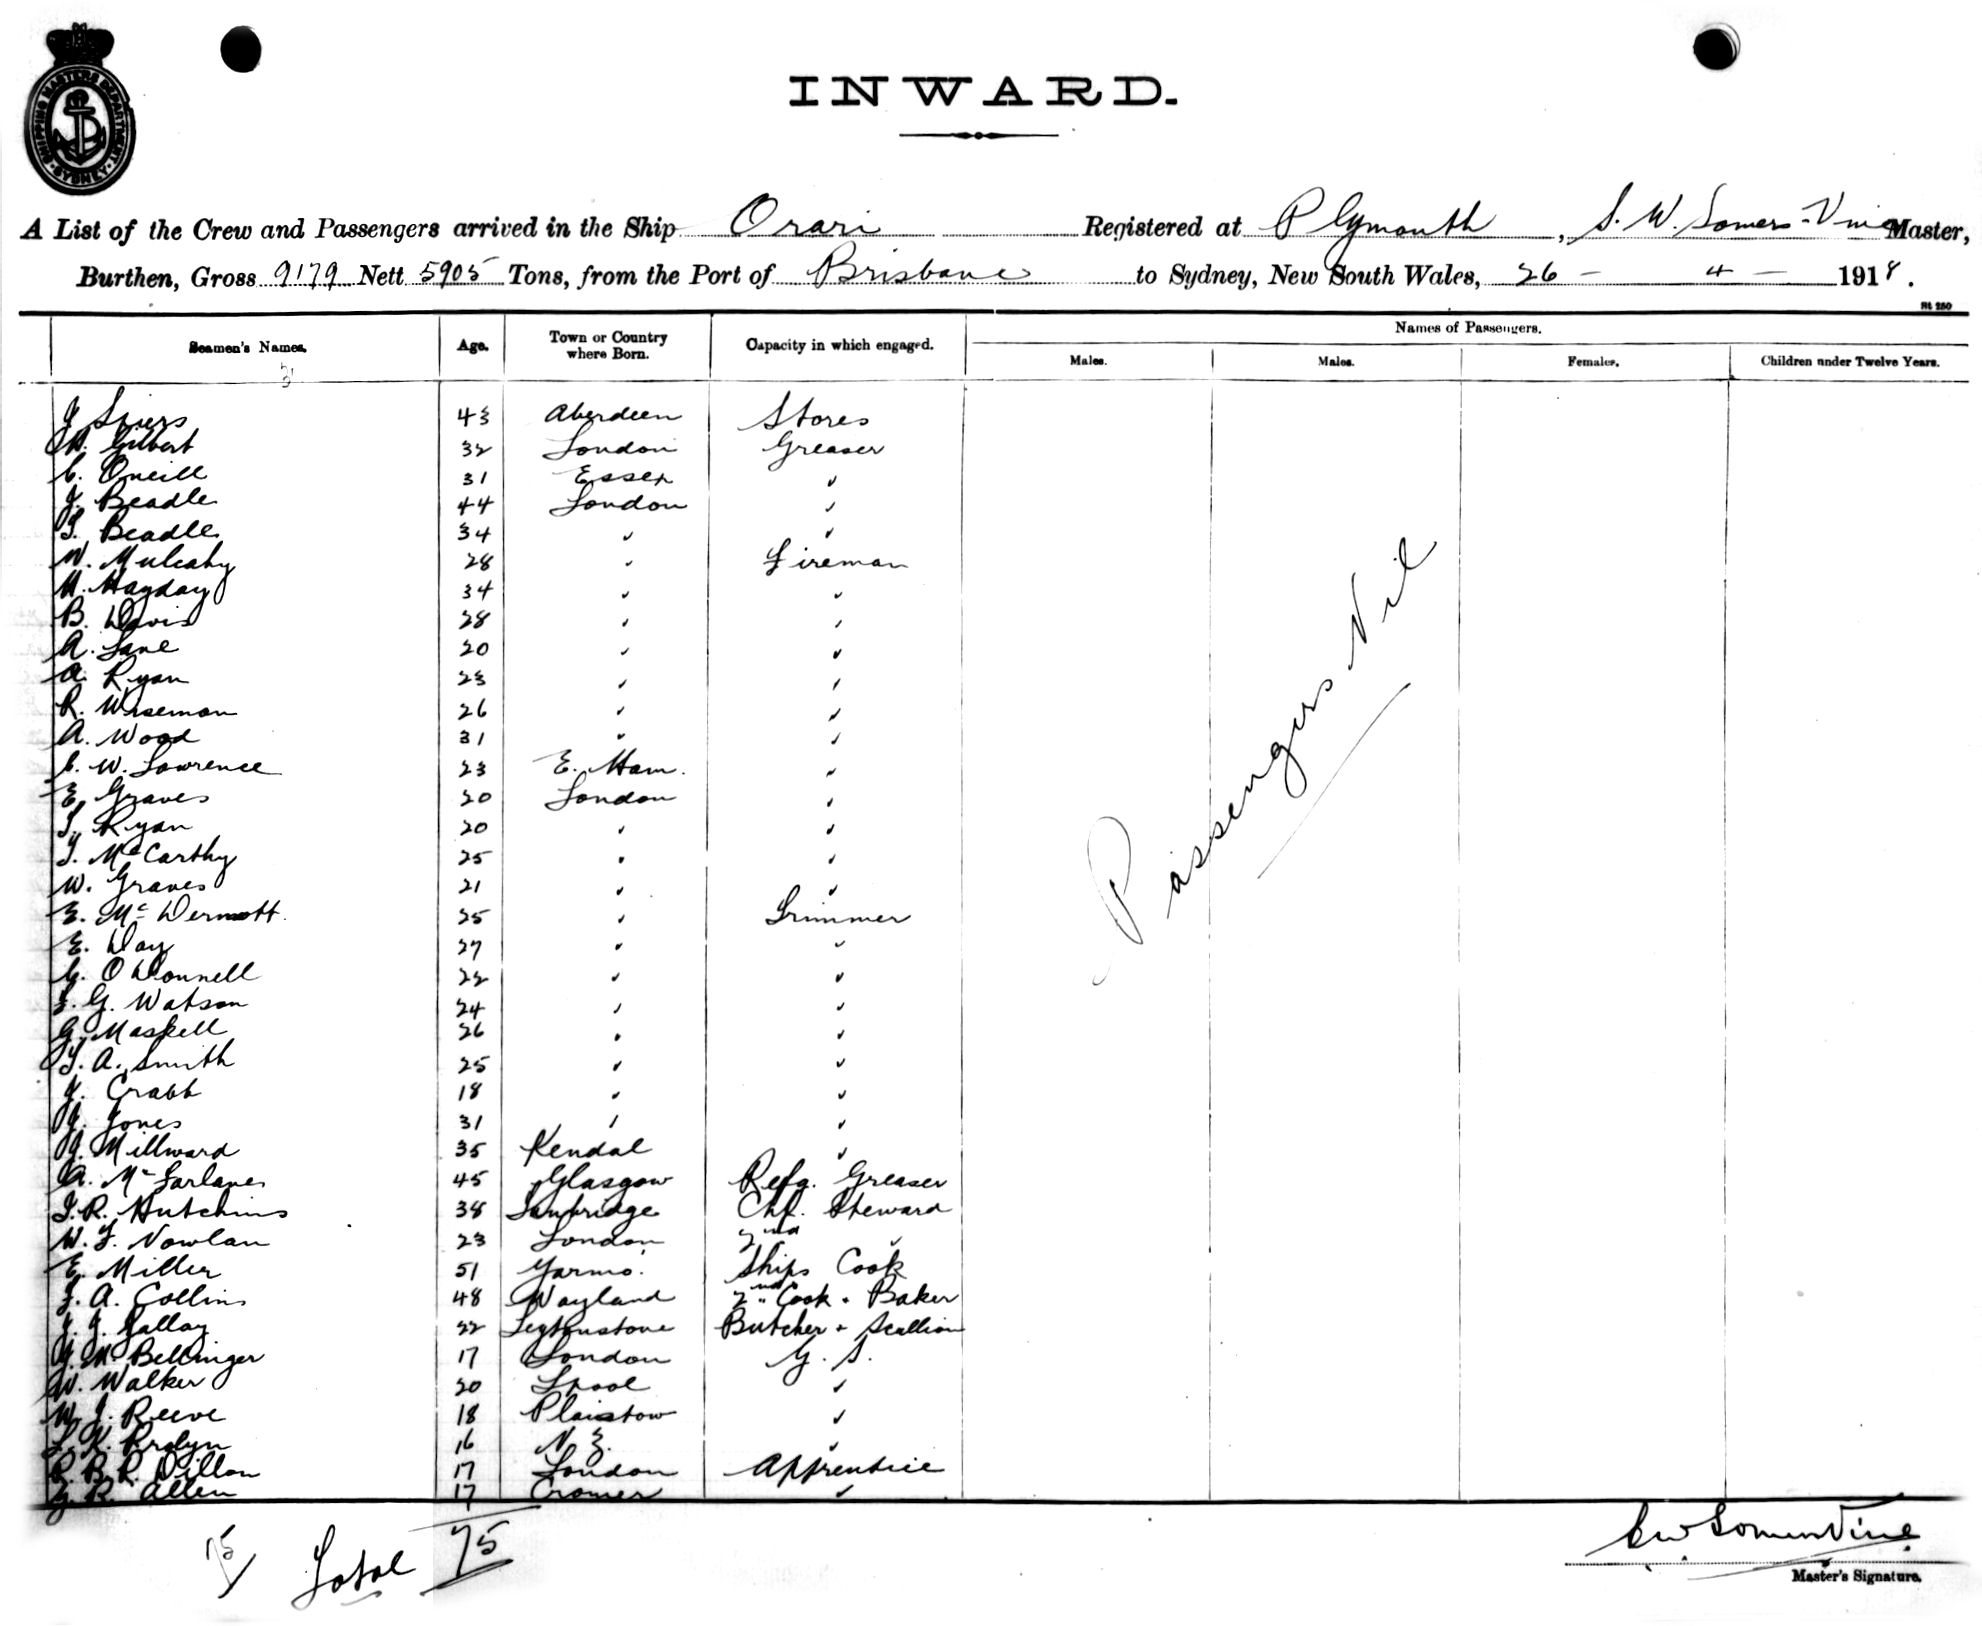 SHIPPING MASTERS DEPARTMENT · SYDNEY ·
INWARD.
A List of the Crew and Passengers arrived in the Ship Orari Registered at Plymouth, S. W. Somers-Vine Master,
Burthen, Gross 9179 Nett 5905 Tons, from the Port of Brisbane to Sydney, New South Wales, 26 - 4 - 1918.
St 250
Seamen's Names. Age. Town or Country where Born. Capacity in which engaged. Names of Passengers.
Males. Males. Females. Children under Twelve Years.
J. Spiers 43 Aberdeen Stores
H. Gilbert 32 London Greaser
C. Oneill 31 Essex "
J. Beadle 44 London "
T. Beadle 34 " "
W. Mulcahy 28 " Fireman
H. Hayday 34 " "
B. Davis 28 " "
A. Lane 20 " "
A. Ryan 23 " "
R. Wiseman 26 " "
A. Wood 31 " "
C. W. Lawrence 23 E. Ham. "
E. Graves 20 London "
T. Ryan 20 " "
T. McCarthy 25 " "
W. Graves 21 " "
E. McDermott. 25 " Trimmer
E. Day 27 " "
G. O'Donnell 22 " "
F. G. Watson 24 " "
G. Maskell 26 " "
T. A. Smith 25 " "
J. Crabb 18 " "
J. Jones 31 " "
J. Millward 35 Kendal "
A. McFarlane 45 Glasgow Refg. Greaser
T. R. Hutchins 38 Tanbridge Chf. Steward
W. F. Nowlan 23 London 2nd "
E. Miller 51 Yarmo. Ships Cook
F. A. Collins 48 Wayland 2nd Cook & Baker
J. J. Gallay 22 Leytonstone Butcher & Scullion
J. H. Bellinger 17 London G. S.
W. Walker 20 Lpool "
W. J. Reeve 18 Plaistow "
L. K. 16 N Z. "
R. B. R. Dillon 17 London Apprentice
G. R. Allen 17 Cromer "
Passengers Nil
75 Total 75
SW Somers Vine
Master's Signature.